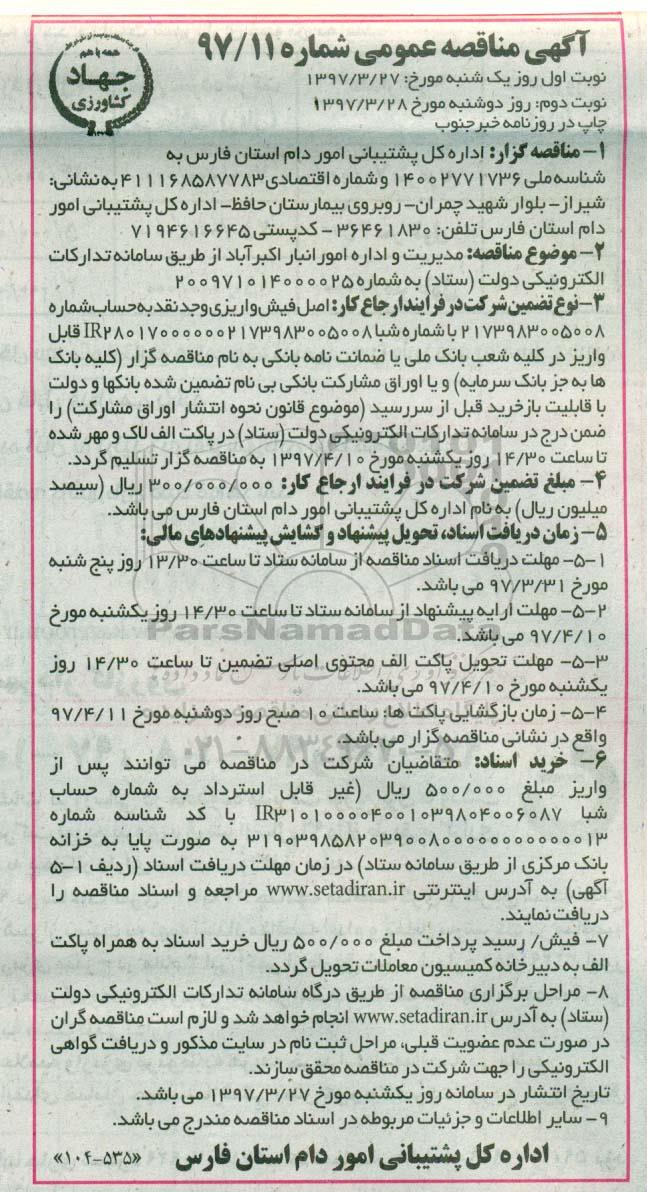 آگهی مناقصه عمومی شماره ۹۷/۱۱
همه با هم
جهاد
کشاورزی
نوبت اول روز یک شنبه مورخ: ۱۳۹۷/۳/۲۷
نوبت دوم: روز دوشنبه مورخ ۱۳۹۷/۳/۲۸
چاپ در روزنامه خبر جنوب
۱- مناقصه گزار: اداره کل پشتیبانی امور دام استان فارس به
شناسه ملی ۱۴۰۰۲۷۷۱۷۳۶ و شماره اقتصادی ۴۱۱۱۶۸۵۸۷۷۸۳ به نشانی:
شیراز- بلوار شهید چمران- روبروی بیمارستان حافظ- اداره کل پشتیبانی امور
دام استان فارس تلفن: ۳۶۴۶۱۸۳۰ - کدپستی ۷۱۹۴۶۱۶۶۴۵
۲- موضوع مناقصه: مدیریت و اداره امور انبار اکبرآباد از طریق سامانه تدارکات
الکترونیکی دولت (ستاد) به شماره ۲۰۰۹۷۱۰۱۴۰۰۰۰۲۵
۳- نوع تضمین شرکت در فرایند ارجاع کار: اصل فیش واریزی وجد نقد به حساب شماره
۲۱۷۳۹۸۳۰۰۵۰۰۸ با شماره شبا IR۲۸۰۱۷۰۰۰۰۰۰۰۲۱۷۳۹۸۳۰۰۵۰۰۸ قابل
واریز در کلیه شعب بانک ملی یا ضمانت نامه بانکی به نام مناقصه گزار (کلیه بانک
ها به جز بانک سرمایه) و یا اوراق مشارکت بانکی بی نام تضمین شده بانکها و دولت
با قابلیت بازخرید قبل از سررسید (موضوع قانون نحوه انتشار اوراق مشارکت) را
ضمن درج در سامانه تدارکات الکترونیکی دولت (ستاد) در پاکت الف لاک و مهر شده
تا ساعت ۱۴/۳۰ روز یکشنبه مورخ ۱۳۹۷/۴/۱۰ به مناقصه گزار تسلیم گردد.
۴- مبلغ تضمین شرکت در فرایند ارجاع کار: ۳۰۰/۰۰۰/۰۰۰ ریال (سیصد
میلیون ریال) به نام اداره کل پشتیبانی امور دام استان فارس می باشد.
۵- زمان دریافت اسناد، تحویل پیشنهاد و گشایش پیشنهادهای مالی:
۵-۱- مهلت دریافت اسناد مناقصه از سامانه ستاد تا ساعت ۱۳/۳۰ روز پنج شنبه
مورخ ۹۷/۳/۳۱ می باشد.
۵-۲- مهلت ارایه پیشنهاد از سامانه ستاد تا ساعت ۱۴/۳۰ روز یکشنبه مورخ
۹۷/۴/۱۰ می باشد.
ParsNamadData
۵-۳- مهلت تحویل پاکت الف محتوی اصلی تضمین تا ساعت ۱۴/۳۰ روز
یکشنبه مورخ ۹۷/۴/۱۰ می باشد.
۵-۴- زمان بازگشایی پاکت ها: ساعت ۱۰ صبح روز دوشنبه مورخ ۹۷/۴/۱۱
واقع در نشانی مناقصه گزار می باشد
۶- خرید اسناد: متقاضیان شرکت در مناقصه می توانند پس از
واریز مبلغ ۵۰۰/۰۰۰ ریال (غیر قابل استرداد به شماره حساب
شبا IR۳۱۰۱۰۰۰۰۴۰۰۱۰۳۹۸۰۴۰۰۶۰۸۷ با کد شناسه شماره
۳۱۹۰۳۹۸۵۸۲۰۳۹۰۰۸۰۰۰۰۰۰۰۰۰۰۰۰۰۱۳ به صورت پایا به خزانه
بانک مرکزی از طریق سامانه ستاد) در زمان مهلت دریافت اسناد (ردیف ۱-۵
آگهی) به آدرس اینترنتی www.setadiran.ir مراجعه و اسناد مناقصه را
دریافت نمایند.
۷- فیش/ رسید پرداخت مبلغ ۵۰۰/۰۰۰ ریال خرید اسناد به همراه پاکت
الف به دبیرخانه کمیسیون معاملات تحویل گردد.
۸- مراحل برگزاری مناقصه از طریق درگاه سامانه تدارکات الکترونیکی دولت
(ستاد) به آدرس www.setadiran.ir انجام خواهد شد و لازم است مناقصه گران
در صورت عدم عضویت قبلی، مراحل ثبت نام در سایت مذکور و دریافت گواهی
الکترونیکی را جهت شرکت در مناقصه محقق سازند.
تاریخ انتشار در سامانه روز یکشنبه مورخ ۱۳۹۷/۳/۲۷ می باشد.
۹- سایر اطلاعات و جزئیات مربوطه در اسناد مناقصه مندرج می باشد.
اداره کل پشتیبانی امور دام استان فارس «۱۰۴-۵۳۵»